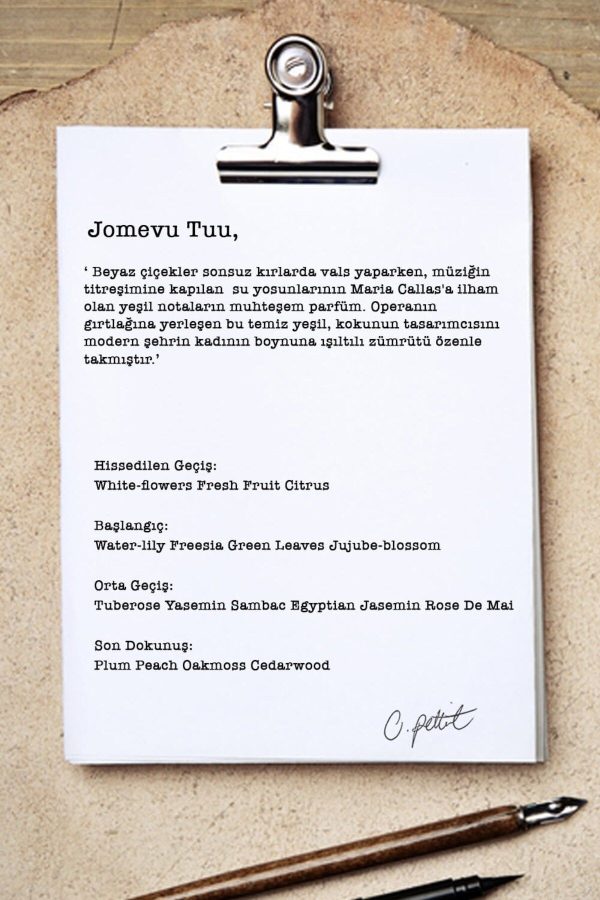 Jomevu Tuu,
‘ Beyaz çiçekler sonsuz kırlarda vals yaparken, müziğin
titreşimine kapılan su yosunlarının Maria Callas'a ilham
olan yeşil notaların muhteşem parfüm. Operanın
gırtlağına yerleşen bu temiz yeşil, kokunun tasarımcısını
modern şehrin kadının boynuna ışıltılı zümrütü özenle
takmıştır.’
Hissedilen Geçiş:
White-flowers Fresh Fruit Citrus
Başlangıç:
Water-lily Freesia Green Leaves Jujube-blossom
Orta Geçiş:
Tuberose Yasemin Sambac Egyptian Jasemin Rose De Mai
Son Dokunuş:
Plum Peach Oakmoss Cedarwood
C. pettit